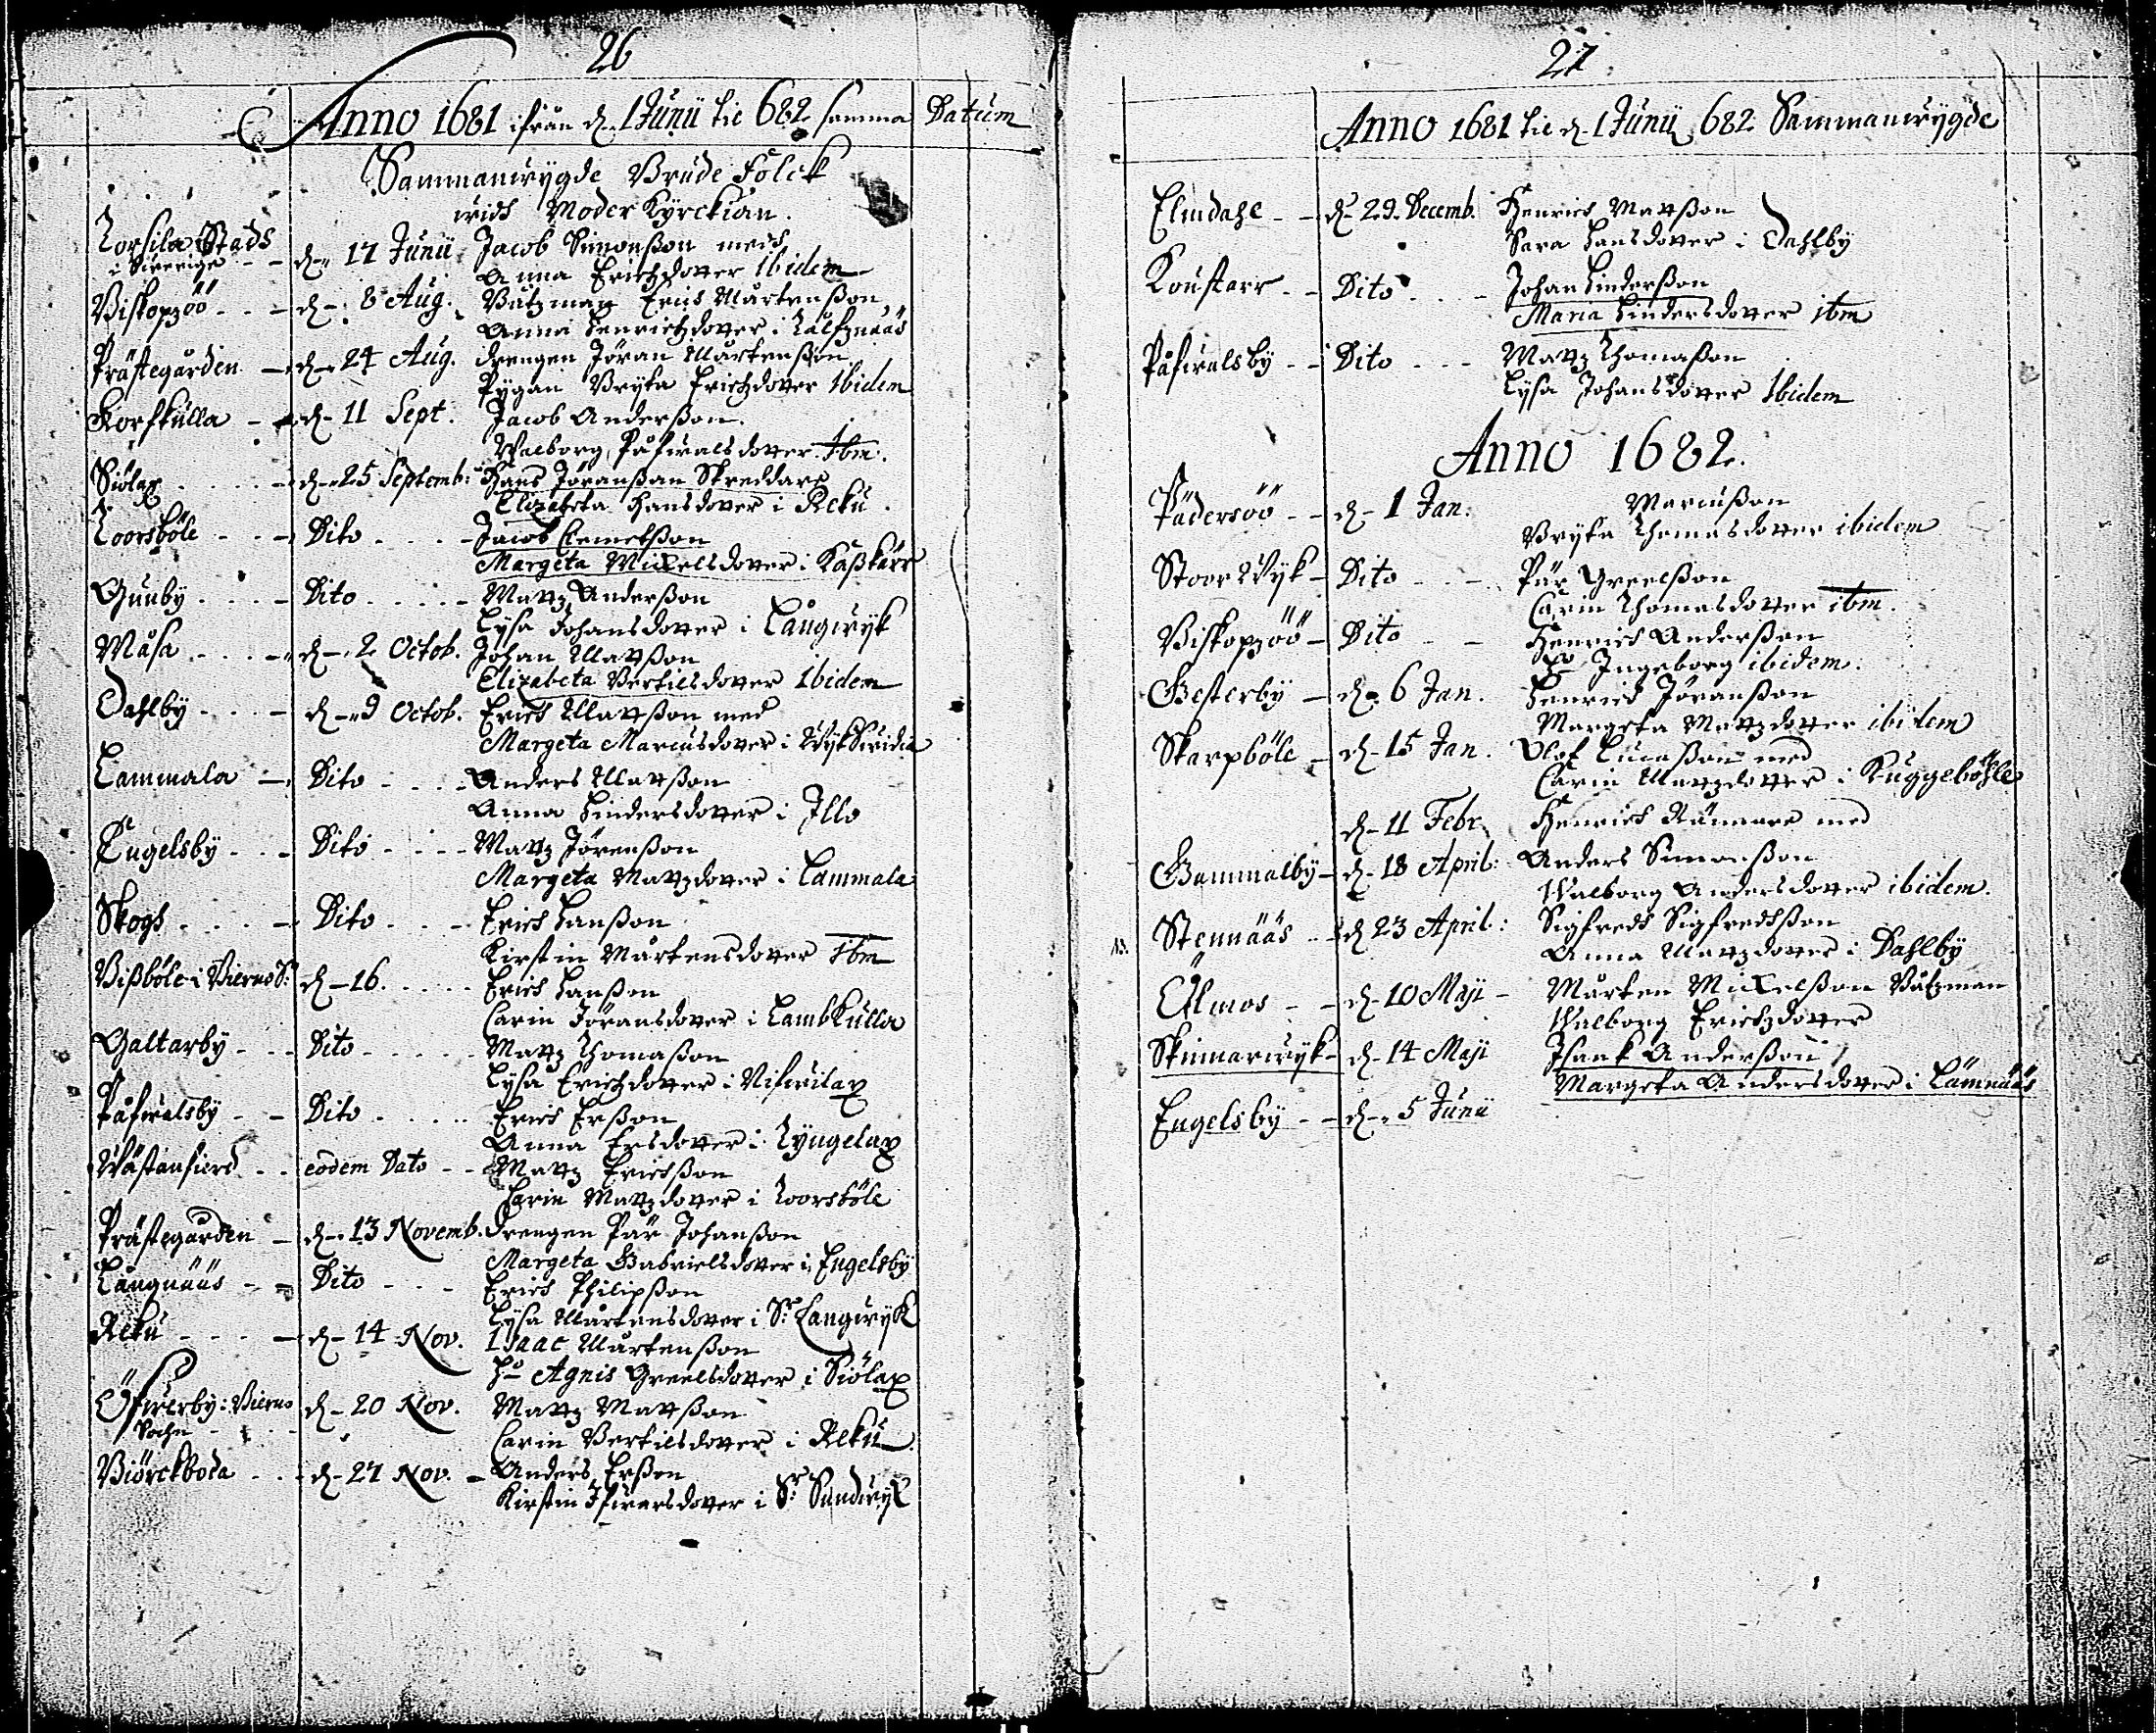 26
Anno 1681 ifrån d. 1 Junii til 682 samma Datum
Sammanwygde Brude Folck
widh Moder Kyrckian.
Torsila Stads
i Swerige - - d. 17 Junii Jacob Simonsson medh
Anna Erichzdotter Ibidem
Biskopzöö - - - d. 8 Aug. Båtzman Erich Mårtensson
Anna Henrichzdotter i Kalfznääs
Prästegården - d. 24 Aug. Drengen Jöran Mårtensson
Pygan Bryta Erichzdotter Ibidem
Korfkulla - - d. 11 Sept. Jacob Andersson.
Walborg Påfwalsdotter Ibm.
Siölax - - - d. 25 Septemb: Hans Jöransson Skreddare
Elizabeta Hansdotter i Reku.
Loorsböle - - - Dito - - - - Jacob Clemetsson
Margeta Mickelsdotter i Kasskärr
Gunby - - - - Dito - - - - - Mattz Andersson
Lysa Johansdotter i Långwyk
Måsa - - - - d. 2 Octob. Johan Mattsson
Elizabeta Bertilsdotter Ibidem
Dahlby - - - - d. 9 Octob. Erich Mattsson med
Margeta Marcusdotter i Wykswidia
Lammala - Dito - - - - Anders Mattsson
Anna Hindersdotter i Illo
Engelsby - - - Dito - - - - Mattz Jörensson
Margeta Mattzdotter i Lammala
Skogh - - - - Dito - - - - Erich Hansson
Kirstin Mårtensdotter Ibm
Bissböle i Bierno S: d. 16. - - - - Erich Hansson
Carin Jöransdotter i Lambkulla
Galtarby - - - Dito - - - - - Mattz Thomasson
Lysa Erichzdotter i Nifwilax
Påfwalsby - - Dito - - - - - Erich Ersson
Anna Ersdotter i Tyngelax
Wästanfierd - - eodem Dato - - Mattz Erichsson
Carin Mattzdotter i Loorsböle
Prästegården - d. 13 Novemb. Drengen Pär Johansson
Margeta Gabrielsdotter i Engelsby
Långnääs - - Dito - - - Erich Philipsson
Lysa Mårtensdotter i S: Langwyk
Reku - - - - d. 14 Nov. Isaac Mårtensson
Hu Agnis Greelsdotter i Siölax
Öfwerby i Bierno d. 20 Nov. Mattz Mattsson
Sochn - - - Carin Bertilsdotter i Reku
Biörckboda - - - d. 27 Nov. - Anders Ersson
Kirstin Ifwarsdotter i S: Sundwyk
27
Anno 1681 til d. 1 Junii 682 Sammanwygde
Elmdahl - - d. 29. Decemb. Henrich Mattsson
Sara Larsdotter i Dahlby
Konstarr - - Dito - - - Johan Hindersson
Maria Hindersdotter Ibm
Påfwalsby - - Dito - - - Mattz Thomasson
Lysa Johansdotter Ibidem
Anno 1682.
Pädersöö - - d. 1 Jan. Marcusson
Bryta Thomasdotter ibidem
Stoor Wyk - Dito - - - Pär Greelsson
Carin Thomasdotter ibm.
Biskopzöö - Dito - - Henrich Andersson
Ingeborg ibidem.
Gesterby - d. 6 Jan. Henrich Jöransson
Margeta Mattzdotter ibidem
Skarpböle - d. 15 Jan. Olof Lucasson med
Carin Mattzdotter i Kuggeböhle
d. 11 Febr. Henrich Rännare med
Gammalby - d. 18 April: Anders Simonsson
Walborg Andersdotter ibidem.
Stennääs - - d. 23 April: Sigfredh Sigfredhsson
Anna Mattzdotter i Dahlby
Ölmos - - d. 10 Maji - Mårten Mickelsson Båtzman
Walborg Erichzdotter
Skinnarwyk - d. 14 Maji Isaak Andersson
Margeta Andersdotter i Lämnääs
Engelsby - - d. 5 Junii